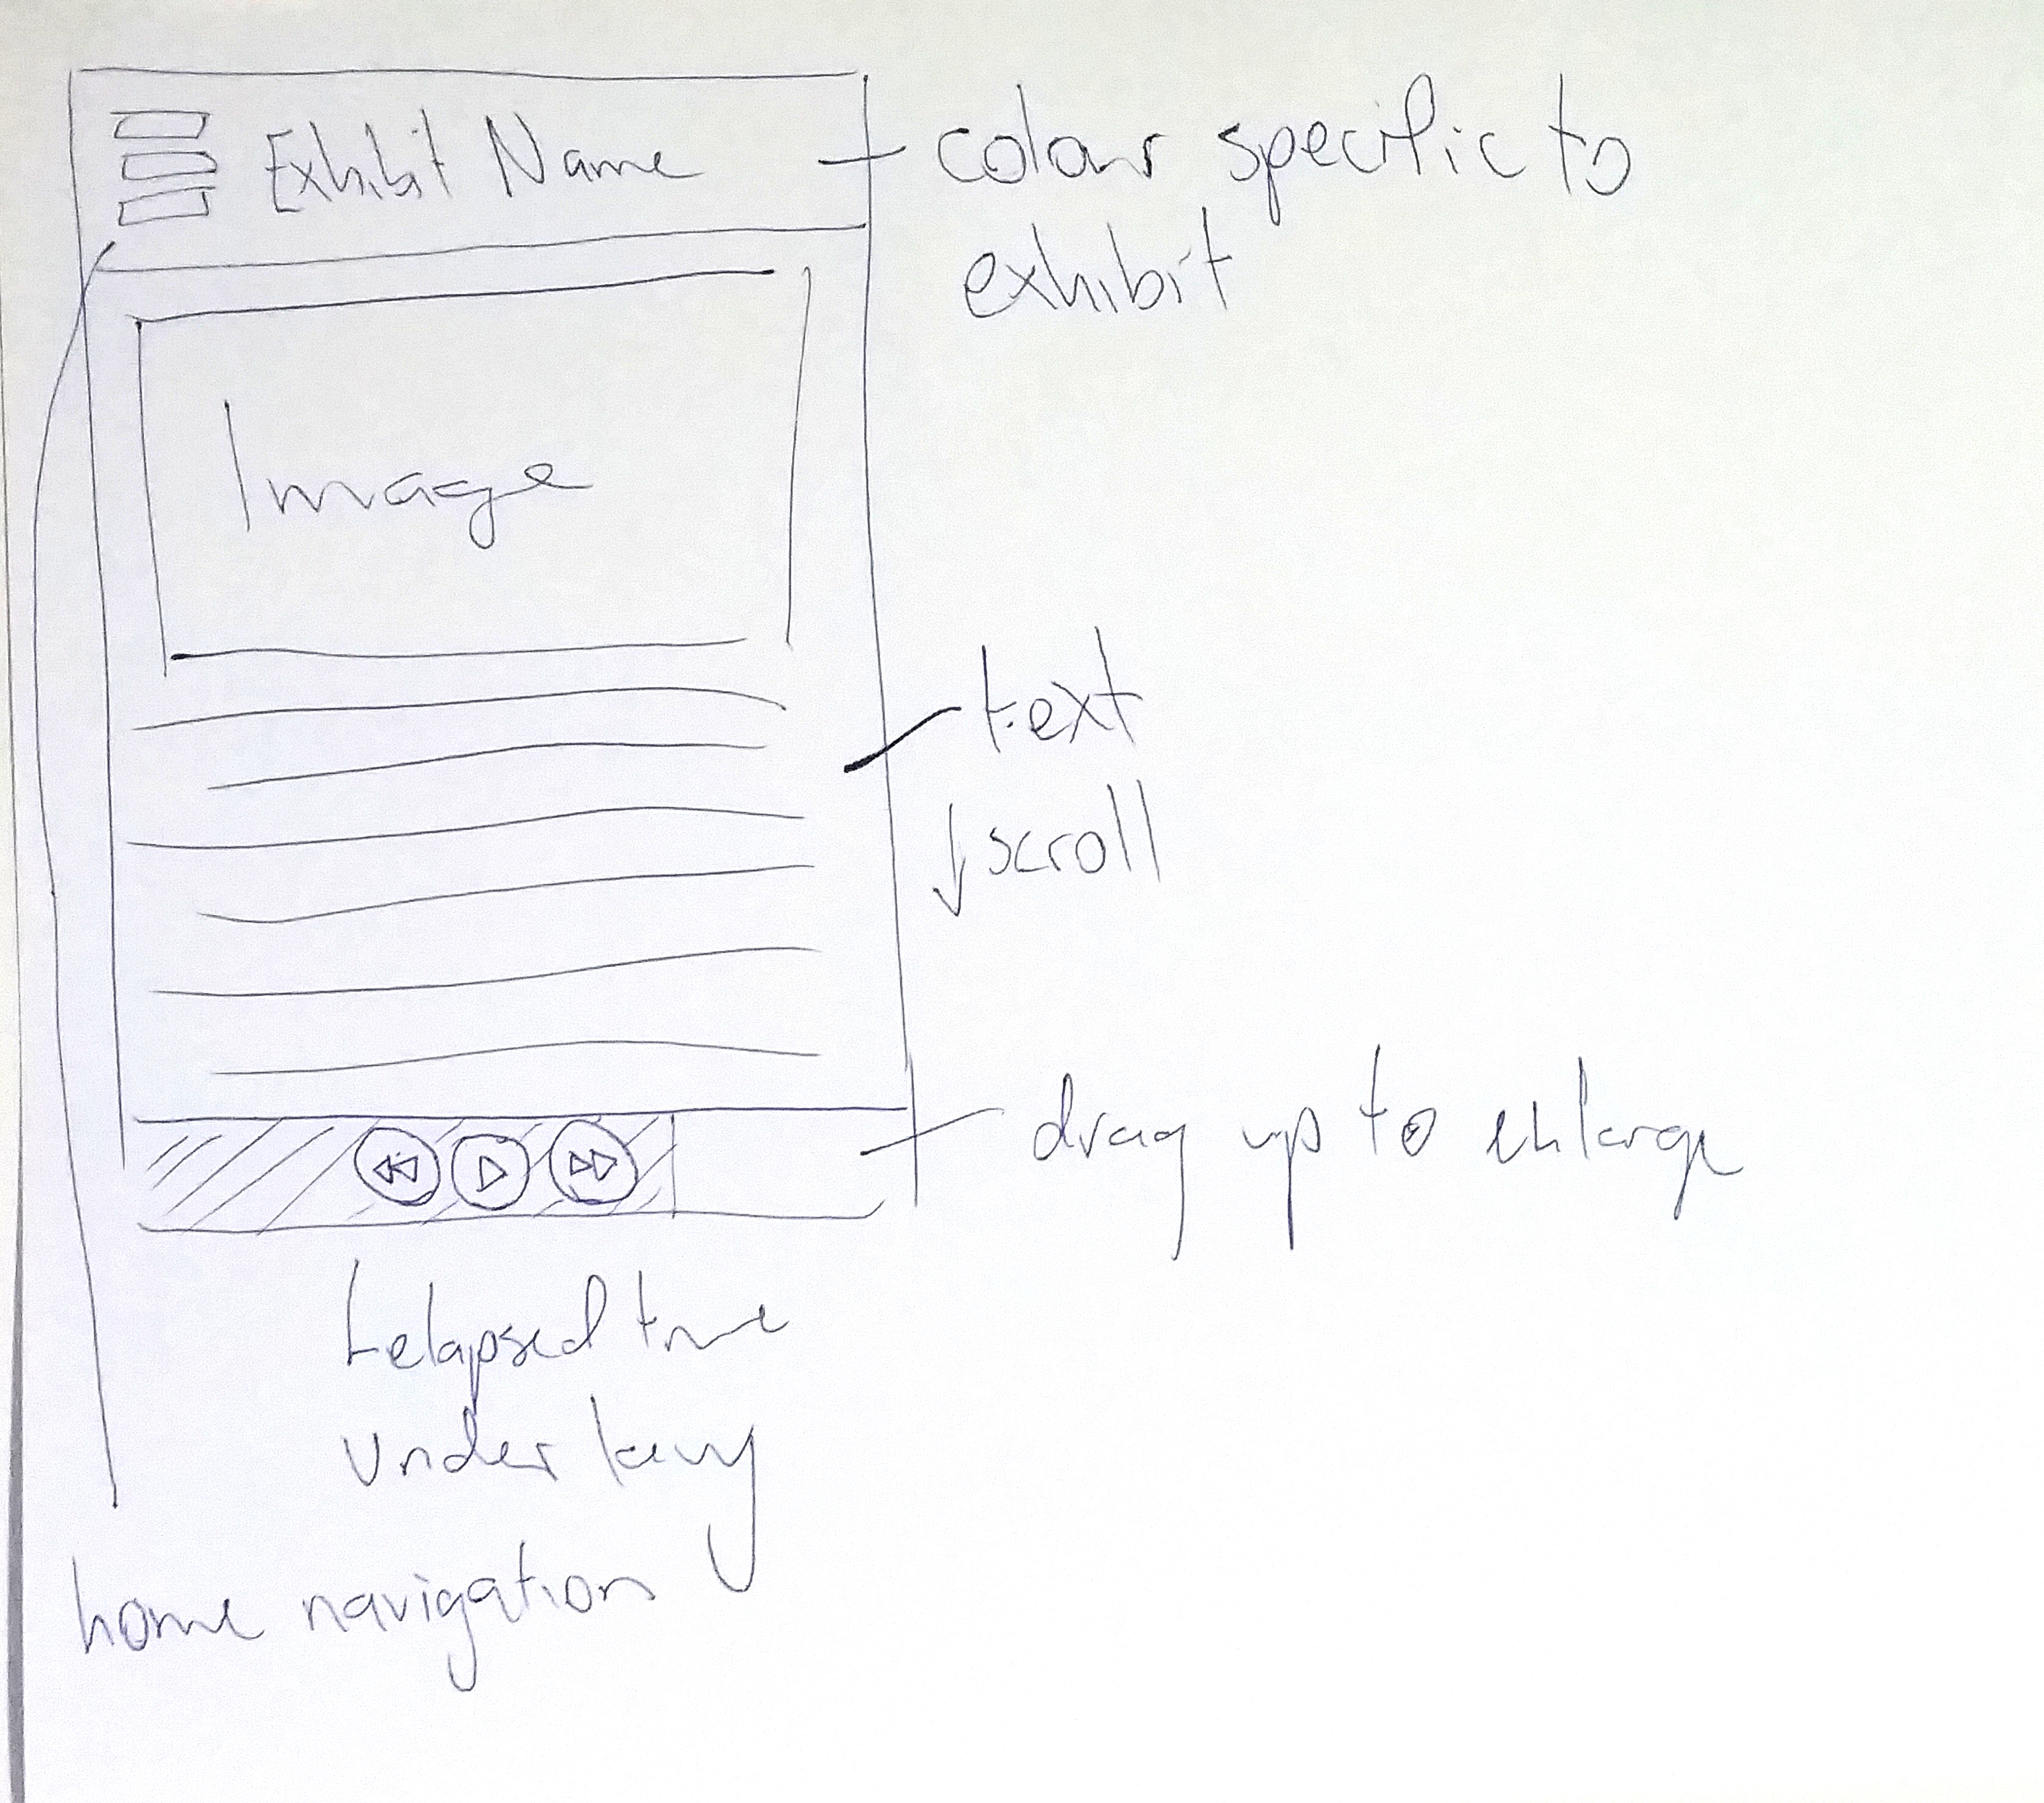 Exhibit Name
colour specific to
exhibit
Image
text
↓ scroll
drag up to enlarge
elapsed time
under
home navigation